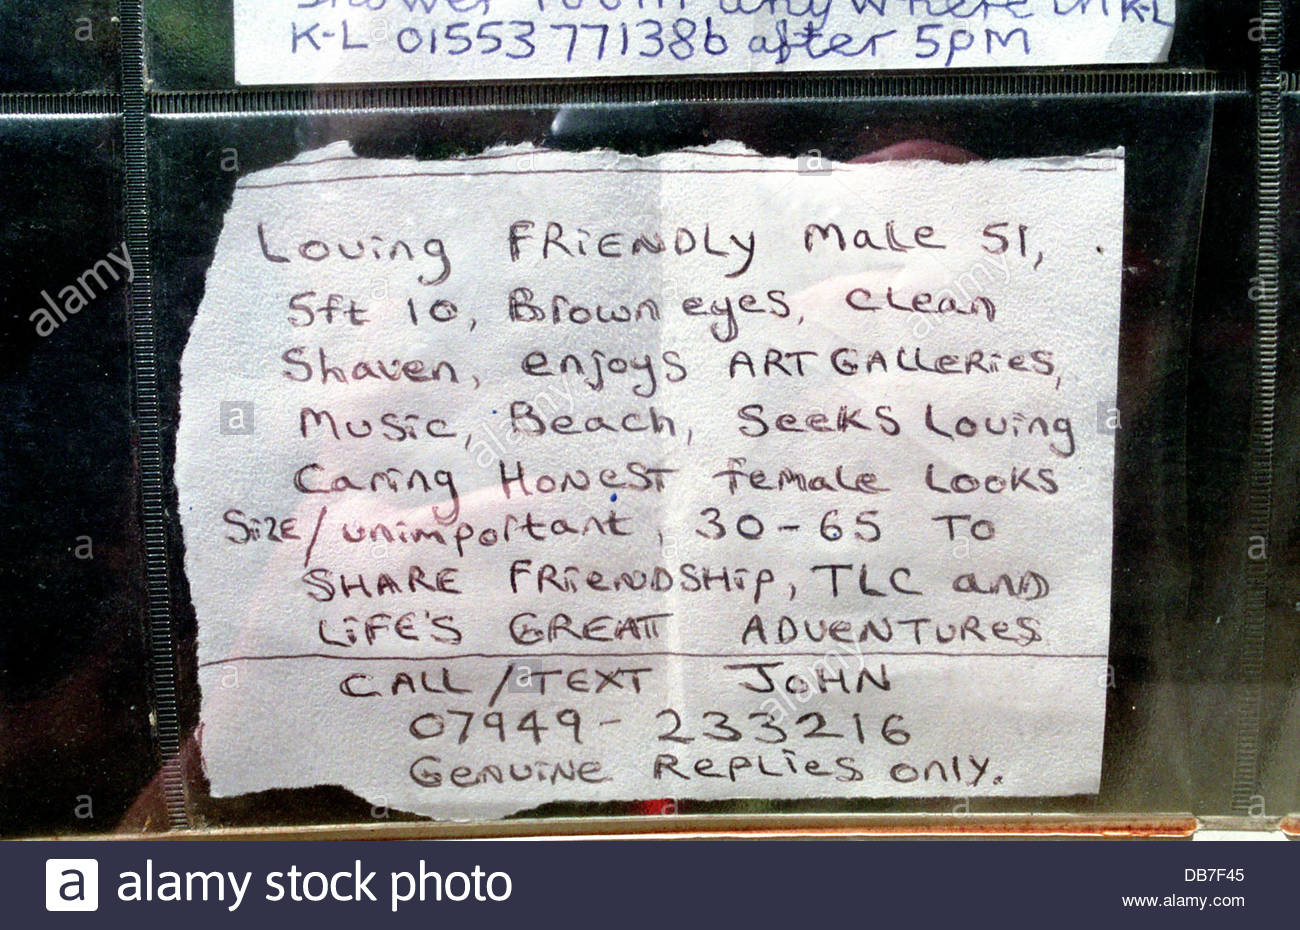 shower room anywhere in K-L
K-L 01553 771386 after 5pm
Loving FRiENDLy Male 51,
5ft 10, Brown eyes, clean
Shaven, enjoys ART GALLERIES,
Music, Beach, Seeks Loving
Caring Honest female Looks
Size/unimportant, 30-65 To
SHARE FRIENDSHip, TLC and
LiFE'S GREAT ADVENTURES
CALL/TEXT JOHN
07949-233216
Genuine Replies only.
alamy
alamy
alamy
alamy
a alamy stock photo
DB7F45
www.alamy.com